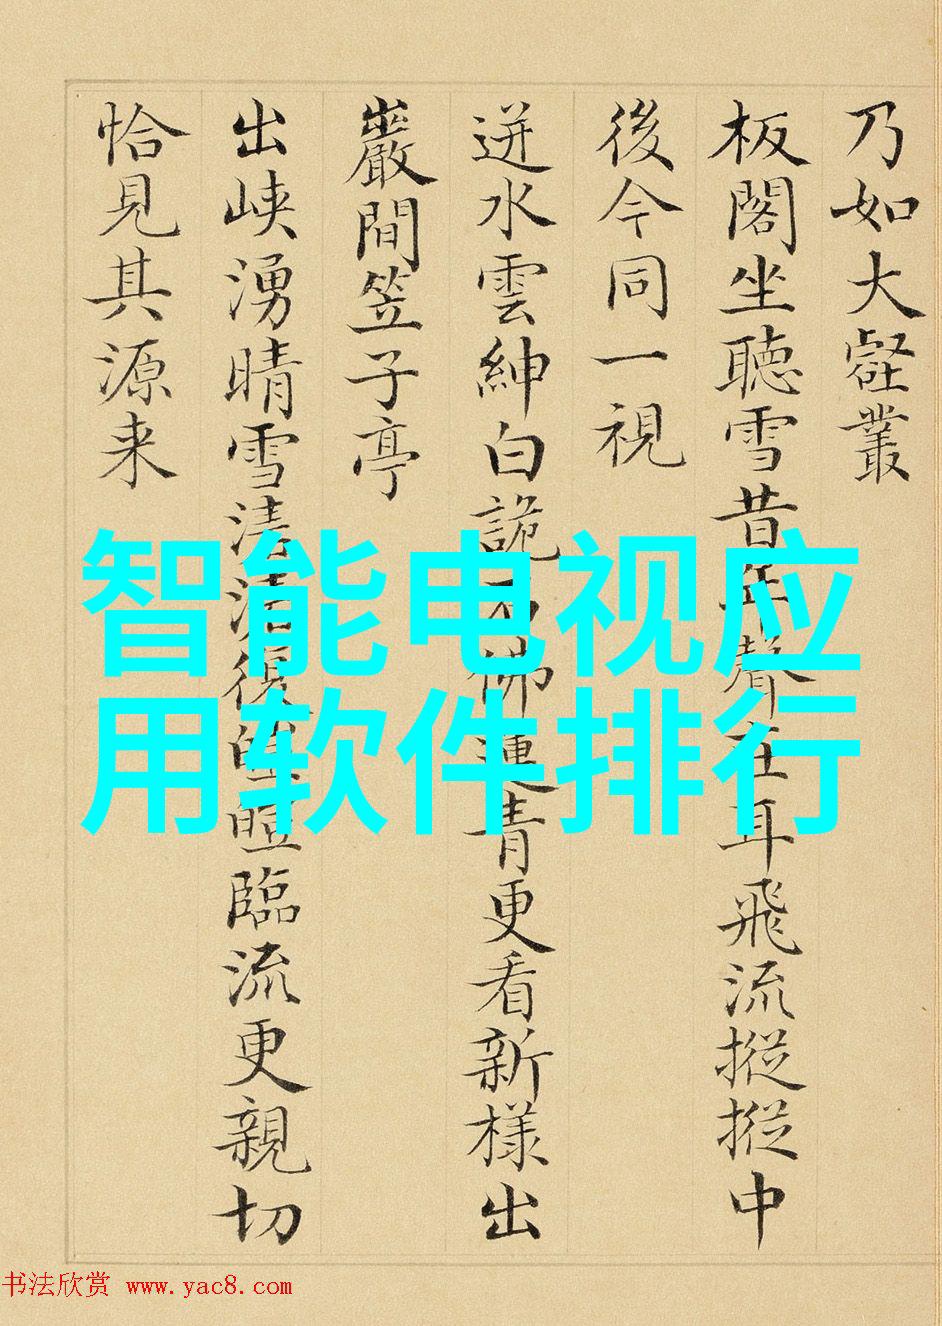 乃如大壑叢
板閣坐聽雪昔年聲在耳飛流摐摐中
後今同一視
迸水雲紳白詭石佛蓮青更看新樣出
巖間笠子亭
出峽湧晴雪清活復臨流更親切
恰見其源来
智能电视应
用软件排行
书法欣赏 www.yac8.com